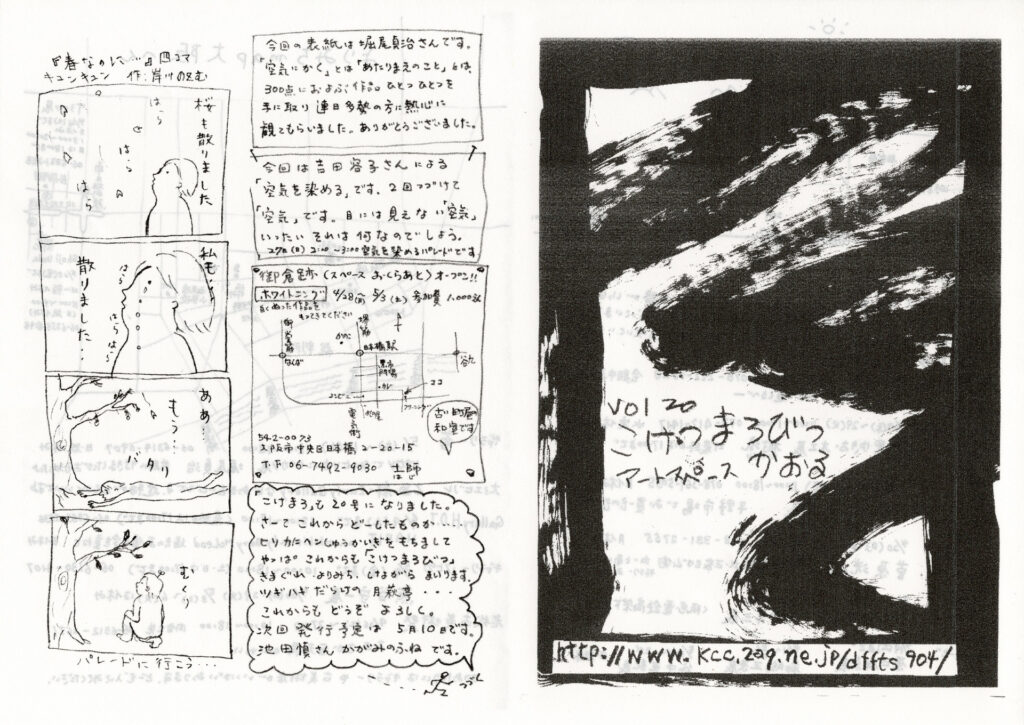 『春なのに…』四コマ
桜も散りました
はら
はら
はら
私も…
散りました…
はら
はらはら
ああ
もう…
バタリ
むくり
パレードに行こう…
今回の表紙は堀尾貞治さんです。
「空気にかく」とは「あたりまえのこと」とは、
300点におよぶ作品ひとつひとつを
手に取り連日多勢の方に熱心に
観てもらいました。ありがとうございました。
今回は吉田容子さんによる
「空気を染める」です。2回つづけて
「空気」です。目には見えない「空気」
いったいそれは何なのでしょう。
27日(日) 2:00〜3:00空気を染めるパレードです
御倉跡(スペース おくらあと)オープン!!
ホワイトニング 4/28(月) 5/3(土) 参加費 1,000
白くぬった作品を
もってきてください
御堂筋
堺筋
なんば
日本橋駅
谷九
黒門市場
ココ
古い町屋の
和室です
542-0073
大阪市中央区日本橋2-20-15
T.F. 06-7492-9030 土師
はじ
こけまろも20号になりました。
さーてこれからどーしたものか
きまぐれ よりみち しながら まいります。
ツギハギだらけの 月萩亭・・・
これからも どうぞ よろしく。
次回発行予定は 5月10日です。
池田慎さん かがみのふね です。
つづく
vol 20
こけつまろびつ
アートスペースかおる
http://www.kcc.zaq.ne.jp/dffts904/